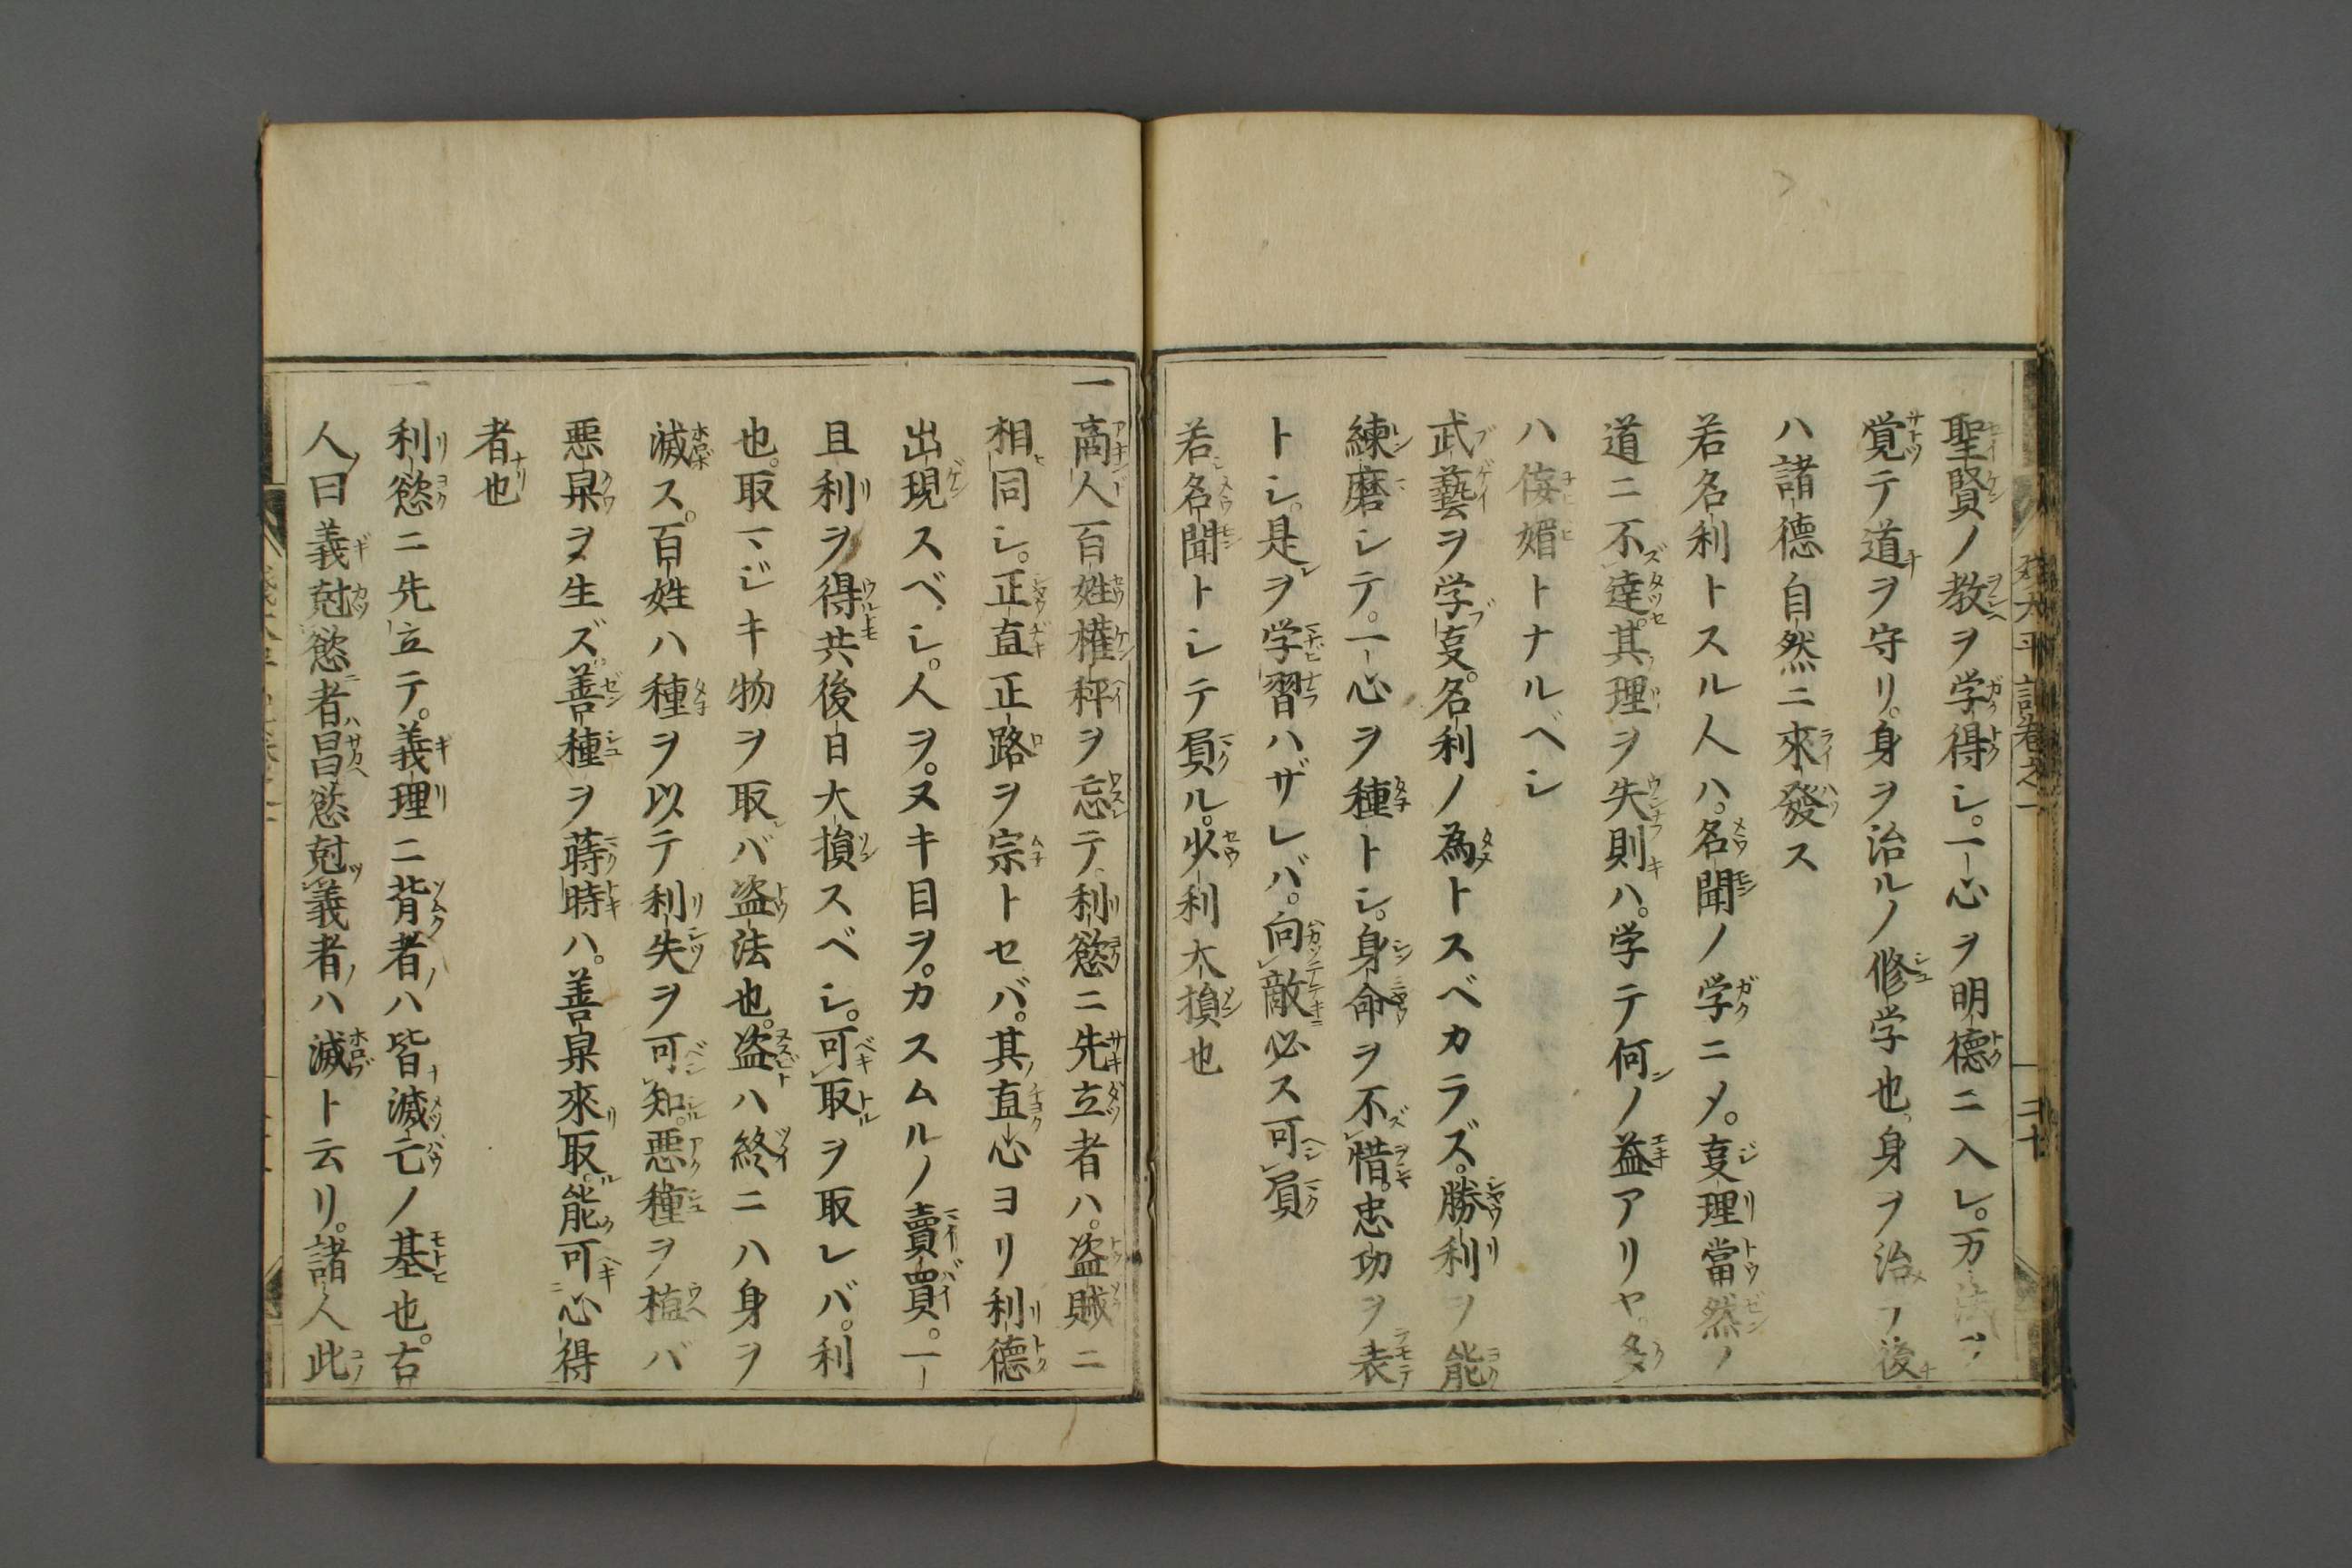 聖賢ノ教ヲ学得シ。一心ヲ明德ニ入レ。万法ヲ
覚テ道ヲ守リ。身ヲ治ルノ修学也。身ヲ治テ後
ハ諸德自然ニ來發ス
若名利トスル人ハ。名聞ノ学ニメ。㕝理當然ノ
道ニ不達。其理ヲ失則ハ。学テ何ノ益アリヤ。多
ハ侫媚トナルベシ
武藝ヲ学㕝。名利ノ為トスベカラズ。勝利ヲ能
練磨シテ。一心ヲ種トシ。身命ヲ不惜。忠功ヲ表
トシ。是ヲ学習ハザレバ。向敵必ス可負
若名聞トシテ負ル。少利大損也
一商人百姓權秤ヲ忘テ。利慾ニ先立者ハ。盗賊ニ
相同シ。正直正路ヲ宗トセバ。其直心ヨリ利德
出現スベシ。人ヲ。ヌキ目ヲ。カスムルノ賣買。一
且利ヲ得共後日大損スベシ。可取ヲ取レバ。利
也。取マジキ物ヲ取バ盗法也。盗ハ終ニハ身ヲ
滅ス。百姓ハ種ヲ以テ利失ヲ可知。悪種ヲ植バ
悪菓ヲ生ズ。善種ヲ蒔時ハ。善菓來取。能可心得
者也
一利慾ニ先立テ。義理ニ背者ハ皆滅亡ノ基也。古
人曰義尅慾者ハ昌慾尅義者ハ滅ト云リ。諸人此
残太平記巻之一
二十